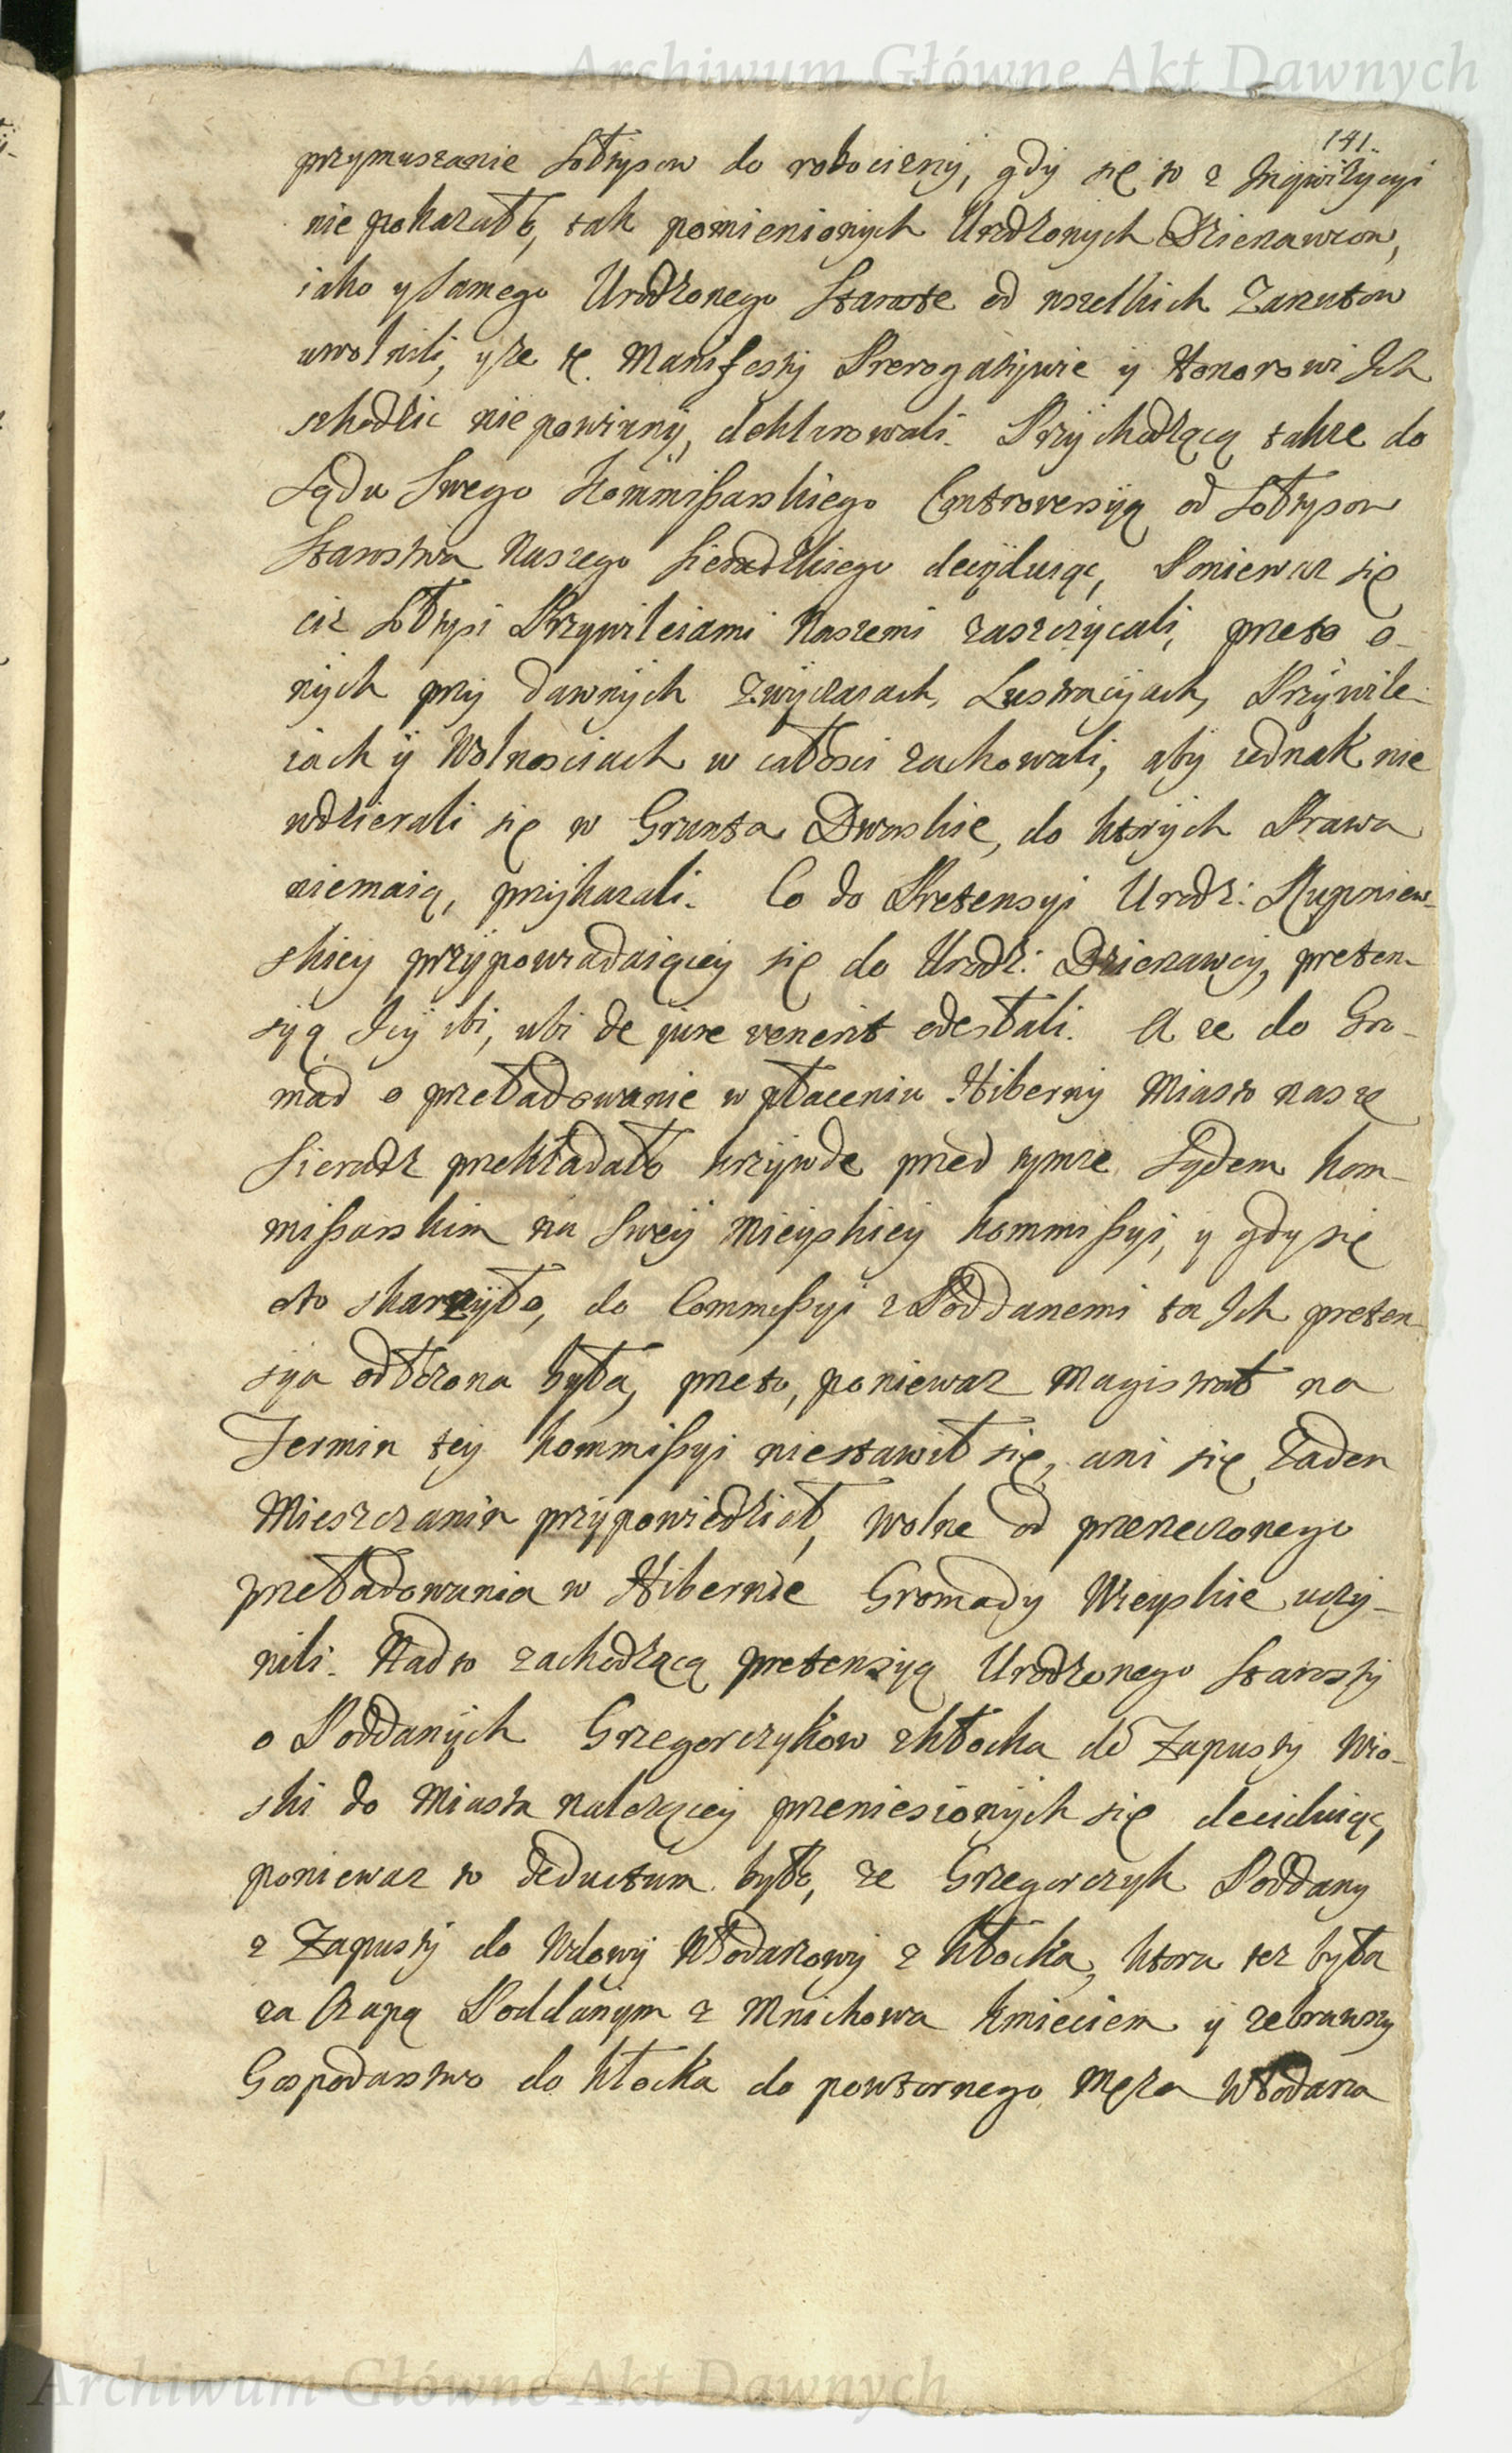 Archiwum Główne Akt Dawnych
141.
przymuszanie Sołtysow do robocizny, gdy się to z Inqwizycyi
nie pokazało, tak pomienionych Urodzonych Dzierzawcow,
iako y samego Urodzonego Starostę od wszelkich Zarzutow
uwolnili, y że te Manifesty Prerogatywie y Honorowi Ich
szkodzic nie powinny, deklarowali. Przychodzącą także do
Sądu Swego Kommissarskiego Controversyą od Sołtysow
Starostwa Naszego Sieradzkiego decyduiąc, Ponieważ się
ciż Sołtysi Przywileiami Naszemi zaszczycali, przeto o-
nych przy dawnych Zwyczaiach, Lustracyach, Przywile-
iach y Wolnosciach w całosci zachowali, aby iednak nie
wdzierali się w Grunta Dworskie, do ktorych Prawa
niemaią, przykazali. Co do Pretensyi Urodz: Rupniew-
skiey przypowiadaiącey się do Urodz: Dzierzawcy, preten-
syą Jey ibi, ubi de jure venerit odesłali. A że do Gro-
mad o przeładowanie w płaceniu Hiberny Miasto nasze
Sieradz przekładało krzywdę przed tymże Sądem Kom-
missarskim na swey Mieyskiey Kommissyi, y gdy się
oto skarzyło, do Commissyi z Poddanemi ta Ich preten-
sya odłożona była, przeto, ponieważ Magistrat na
Termin tey Kommissyi niestawił się, ani się Żaden
Mieszczanin przypowiedział, wolne od przerzeczonego
przeładowania w Hibernie Gromady Wieyskie uczy-
nili. Nadto zachodzącą pretensyą Urodzonego Starosty
o Poddanych Grzegorczykow z Kłocka do Zapusty Wio-
ski do Miasta należącey przeniesionych się deciduiąc,
ponieważ to deductum było, że Grzegorczyk Poddany
z Zapusty do Wdowy Włodarzowy z Kłocka, ktora też była
za Czapą Poddanym z Mnichowa Kmieciem y zebrawszy
Gospodarstwo do Kłocka do powtornego Męża Włodarza
Archiwum Główne Akt Dawnych